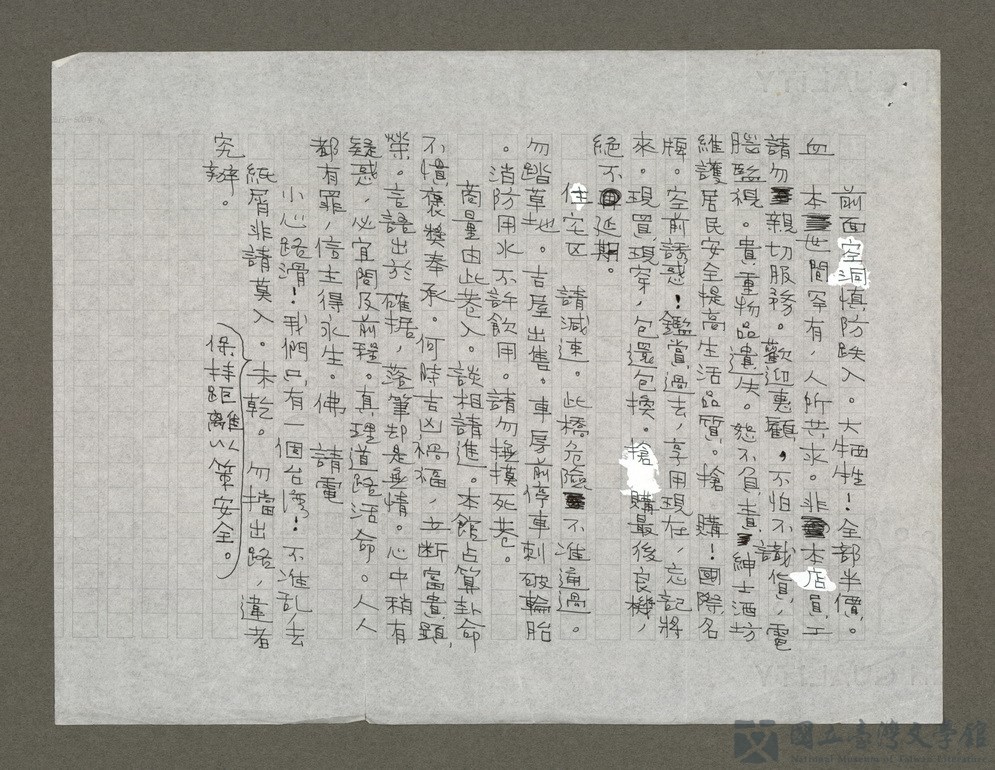 前面空洞慎防跌入。大牺牲！全部半價。
血本世間罕有，人所共求。非本店員工
請勿親切服務。歡迎惠顧，不怕不識貨，電
腦監視。貴重物品遺失。恕不負責，紳士酒坊
維護居民安全提高生活品質。搶　購！國際名
牌。空前誘惑！鑑賞過去，享用現在，忘記將
來。現買現穿，包還包換。搶購最後良機，
絕不延期。
住宅区　請減速。此橋危險不准通過。
勿踏草地。吉屋出售。車房前停車刺破輪胎
。消防用水不許飲用。請勿撫摸死巷。
商量由此巷入。談相請進。本館占算卦命
不慣褒獎奉承。何時吉凶禍福，立断富貴顯
榮。言語出於確据，落筆却是無情。心中稍有
疑惑，必宜問及前程。真理道路活命。人人
都有罪，信主得永生。佛　請電
小心路滑！我們只有一個台湾！不准乱丢
紙屑非請莫入。未乾。勿擋出路，違者
究辦。
保持距離以策安全。
QUALITY
國立臺灣文學館
National Museum of Taiwan Literature